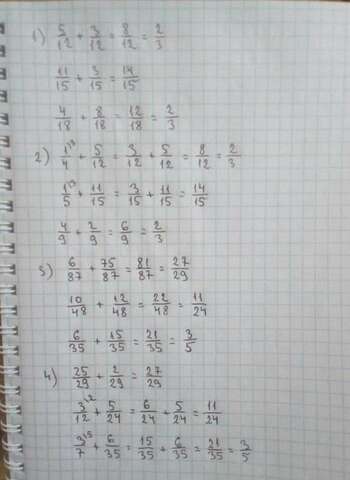 1) 5/12 + 3/12 = 8/12 = 2/3
11/15 + 3/15 = 14/15
4/18 + 8/18 = 12/18 = 2/3
2) 1^3/4 + 5/12 = 3/12 + 5/12 = 8/12 = 2/3
1^3/5 + 11/15 = 3/15 + 11/15 = 14/15
4/9 + 2/9 = 6/9 = 2/3
3) 6/87 + 75/87 = 81/87 = 27/29
10/48 + 12/48 = 22/48 = 11/24
6/35 + 15/35 = 21/35 = 3/5
4) 25/29 + 2/29 = 27/29
3^2/12 + 5/24 = 6/24 + 5/24 = 11/24
3^5/7 + 6/35 = 15/35 + 6/35 = 21/35 = 3/5